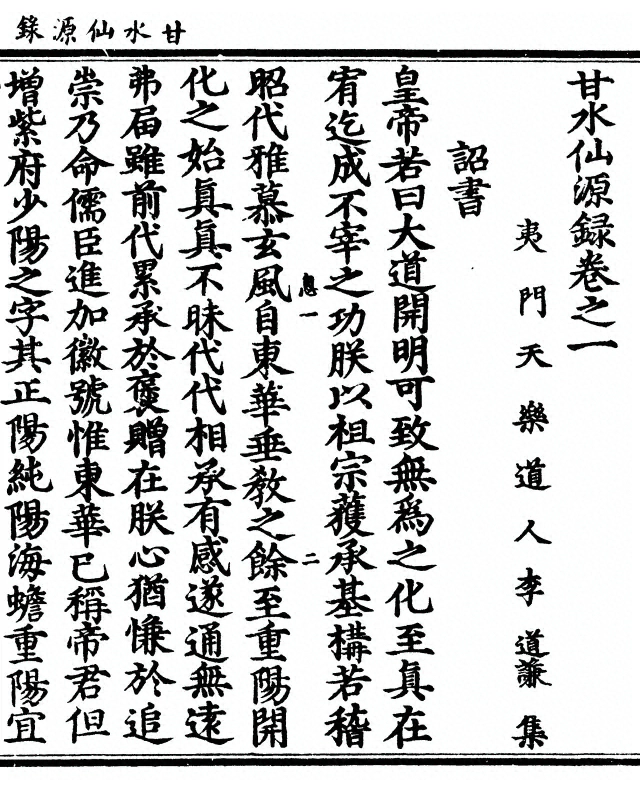 甘水仙源錄
甘水仙源録卷之一
夷門天樂道人李道謙集
詔書
皇帝若曰大道開明可致無爲之化至真在
宥迄成不宰之功朕以祖宗獲承基構若稽
息一
二
昭代雅慕玄風自東華垂教之餘至重陽開
化之始真真不昧代代相承有感遂通無遠
弗届雖前代累承於襃贈在朕心猶慊於追
崇乃命儒臣進加徽號惟東華已稱帝君但
增紫府少陽之字其正陽純陽海蟾重陽宜